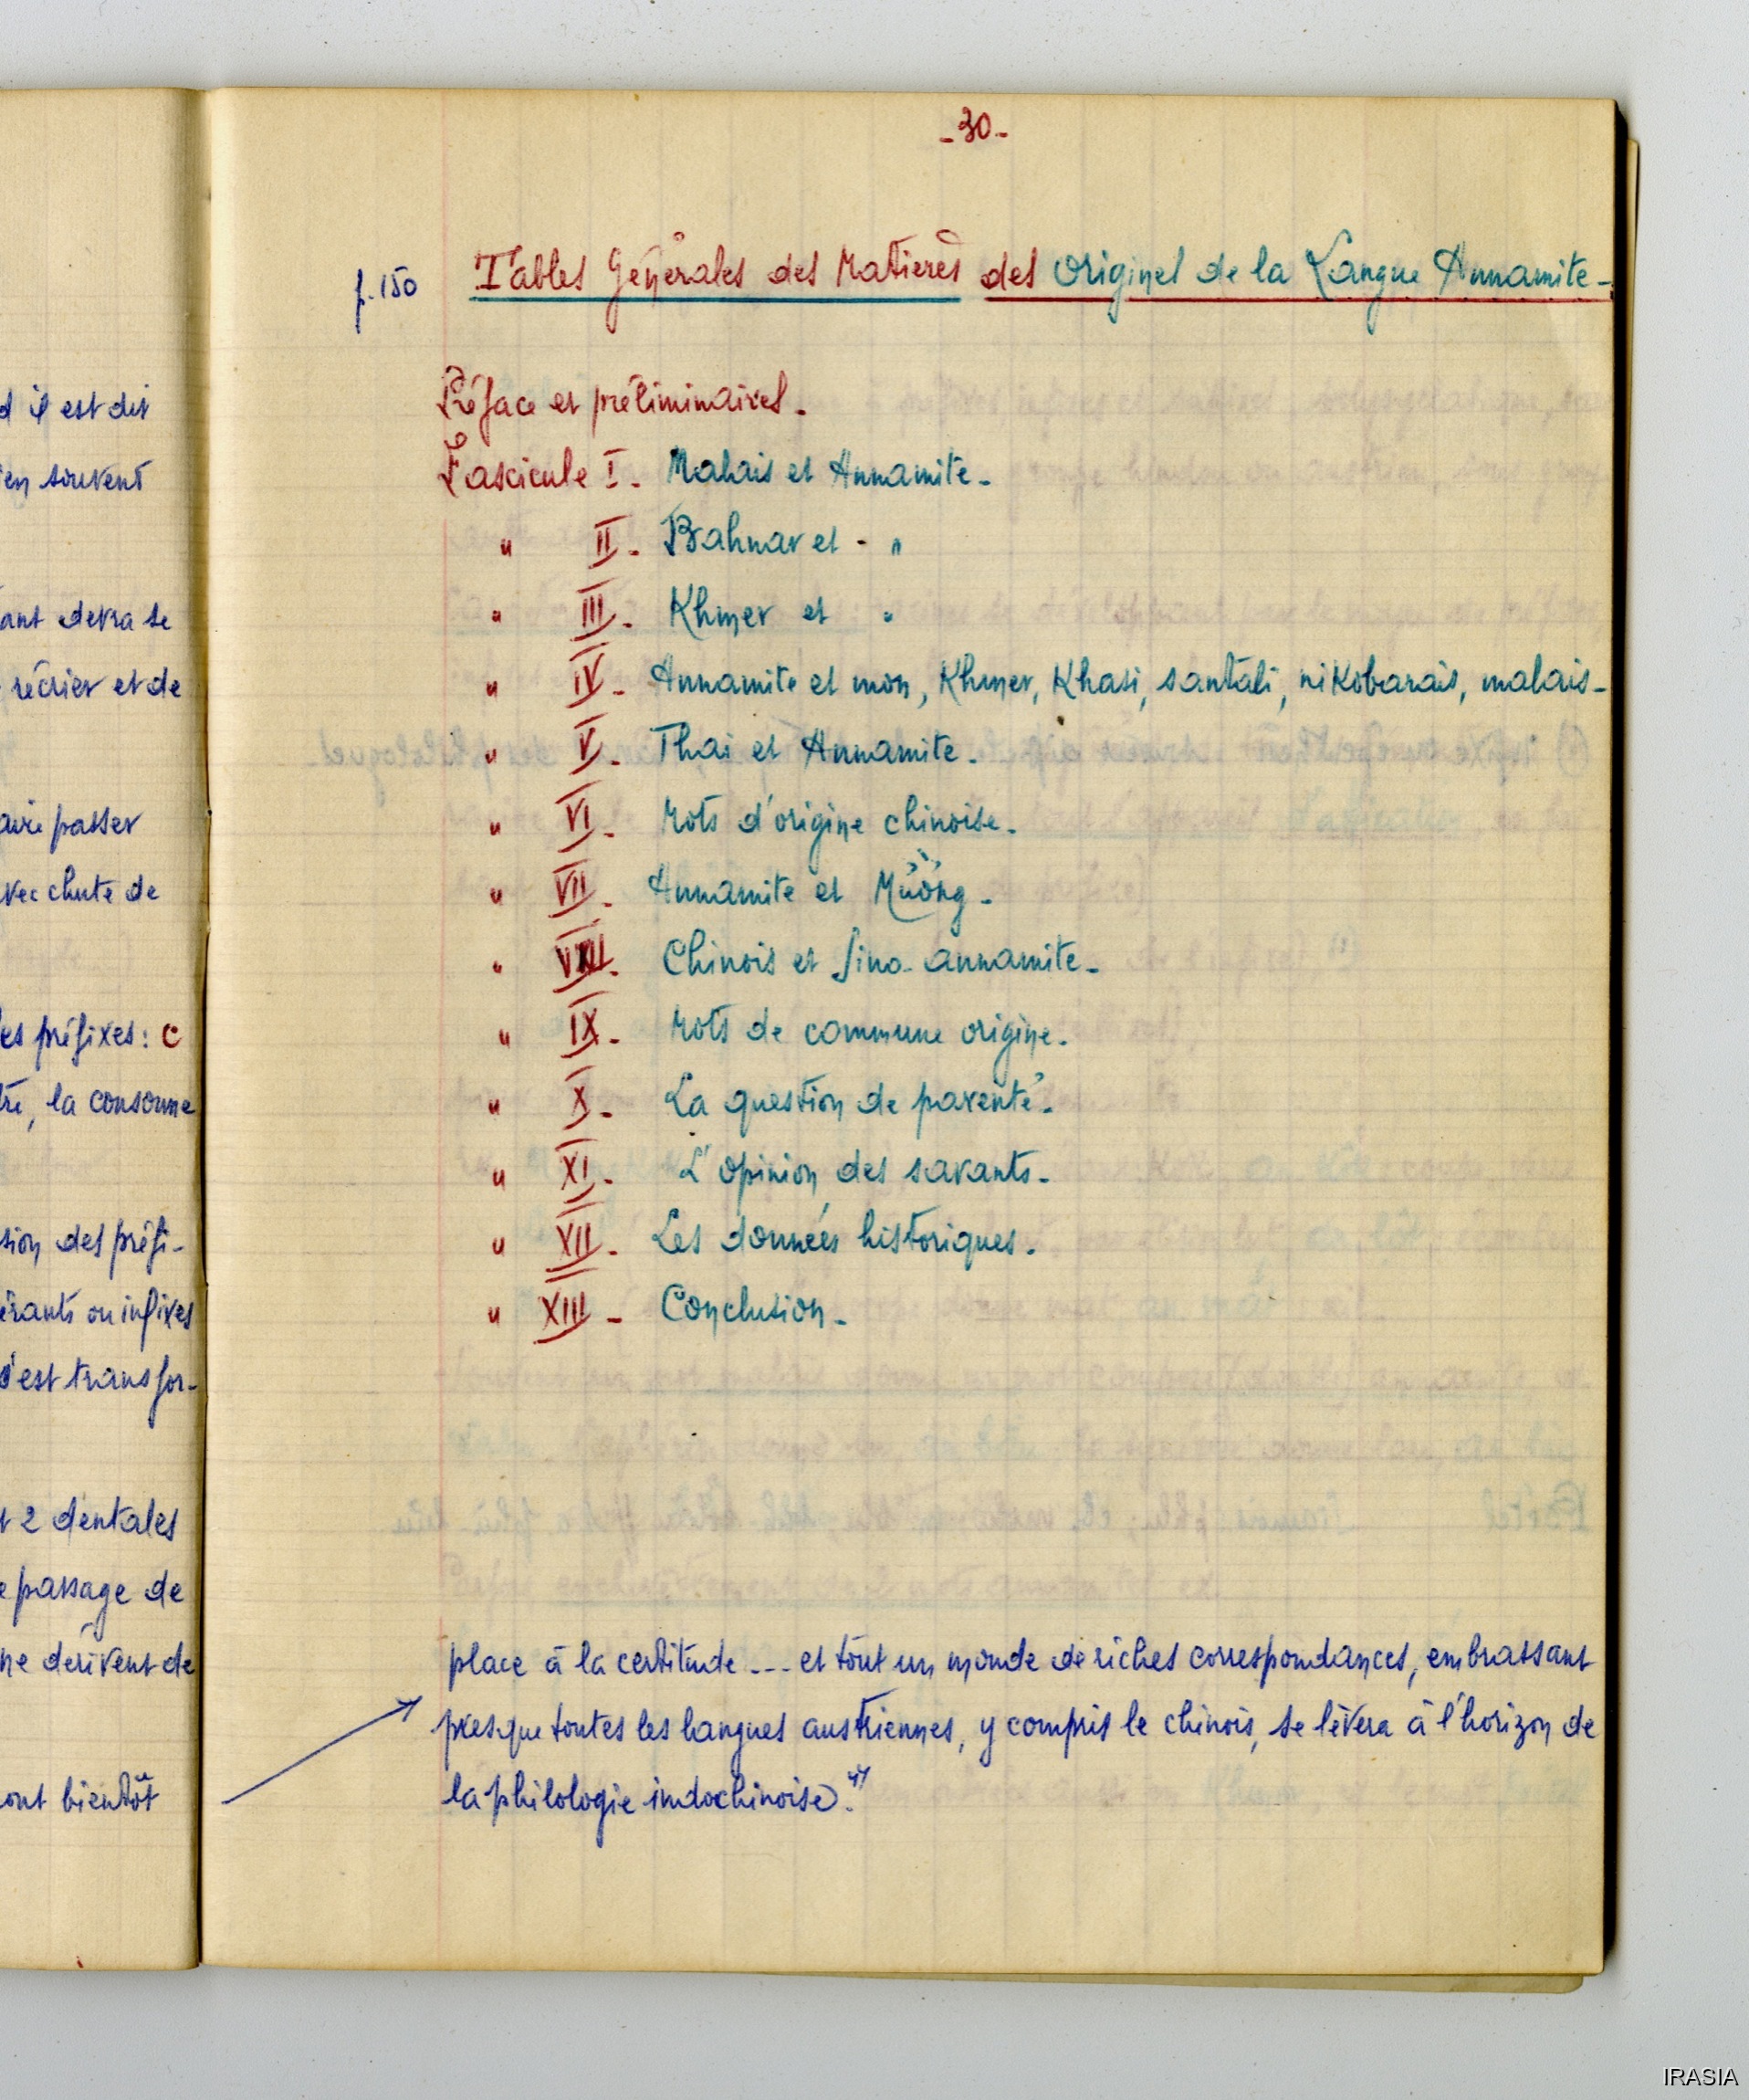 d il est dit
en souvent
ant devra se
récrier et de
aire passer
vec chute de
es préfixes : c
tre, la consonne
sion des préfi-
érants ou infixes
s'est transfor-
t 2 dentales
e passage de
ne dérivent de
ont bientôt
- 30 -
p. 150 Tables Générales des Matières des Origines de la Langue Annamite -
Préface et préliminaires -
Fascicule I - Malais et Annamite -
" II - Bahnar et - "
" III - Khmer et "
" IV - Annamite et mon, Khmer, Khasi, santali, nikobarais, malais -
" V - Thai et Annamite -
" VI - Mots d'origine chinoise -
" VII - Annamite et Mường -
" VIII - Chinois et Sino-annamite -
" IX - Mots de commune origine -
" X - La question de parenté -
" XI - L'opinion des savants -
" XII - Les données historiques -
" XIII - Conclusion -
place à la certitude --- et tout un monde de riches correspondances, embrassant
presque toutes les langues austriennes, y compris le chinois, se lèvera à l'horizon de
la philologie indochinoise."
IRASIA